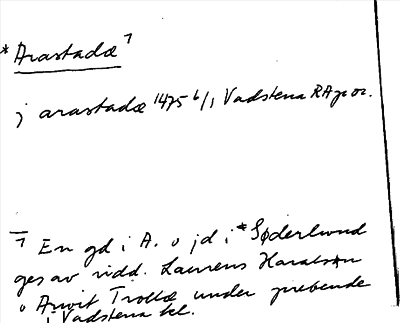 * Arastadæ ⁊
j arastadæ 1475 6/1 Vadstena RAp or.
⁊ En gd i A. o jd i * Söderlund
ges av ridd. Laurens Haralsson
o Arvit Trolle under prebende
i Vadstena kl.